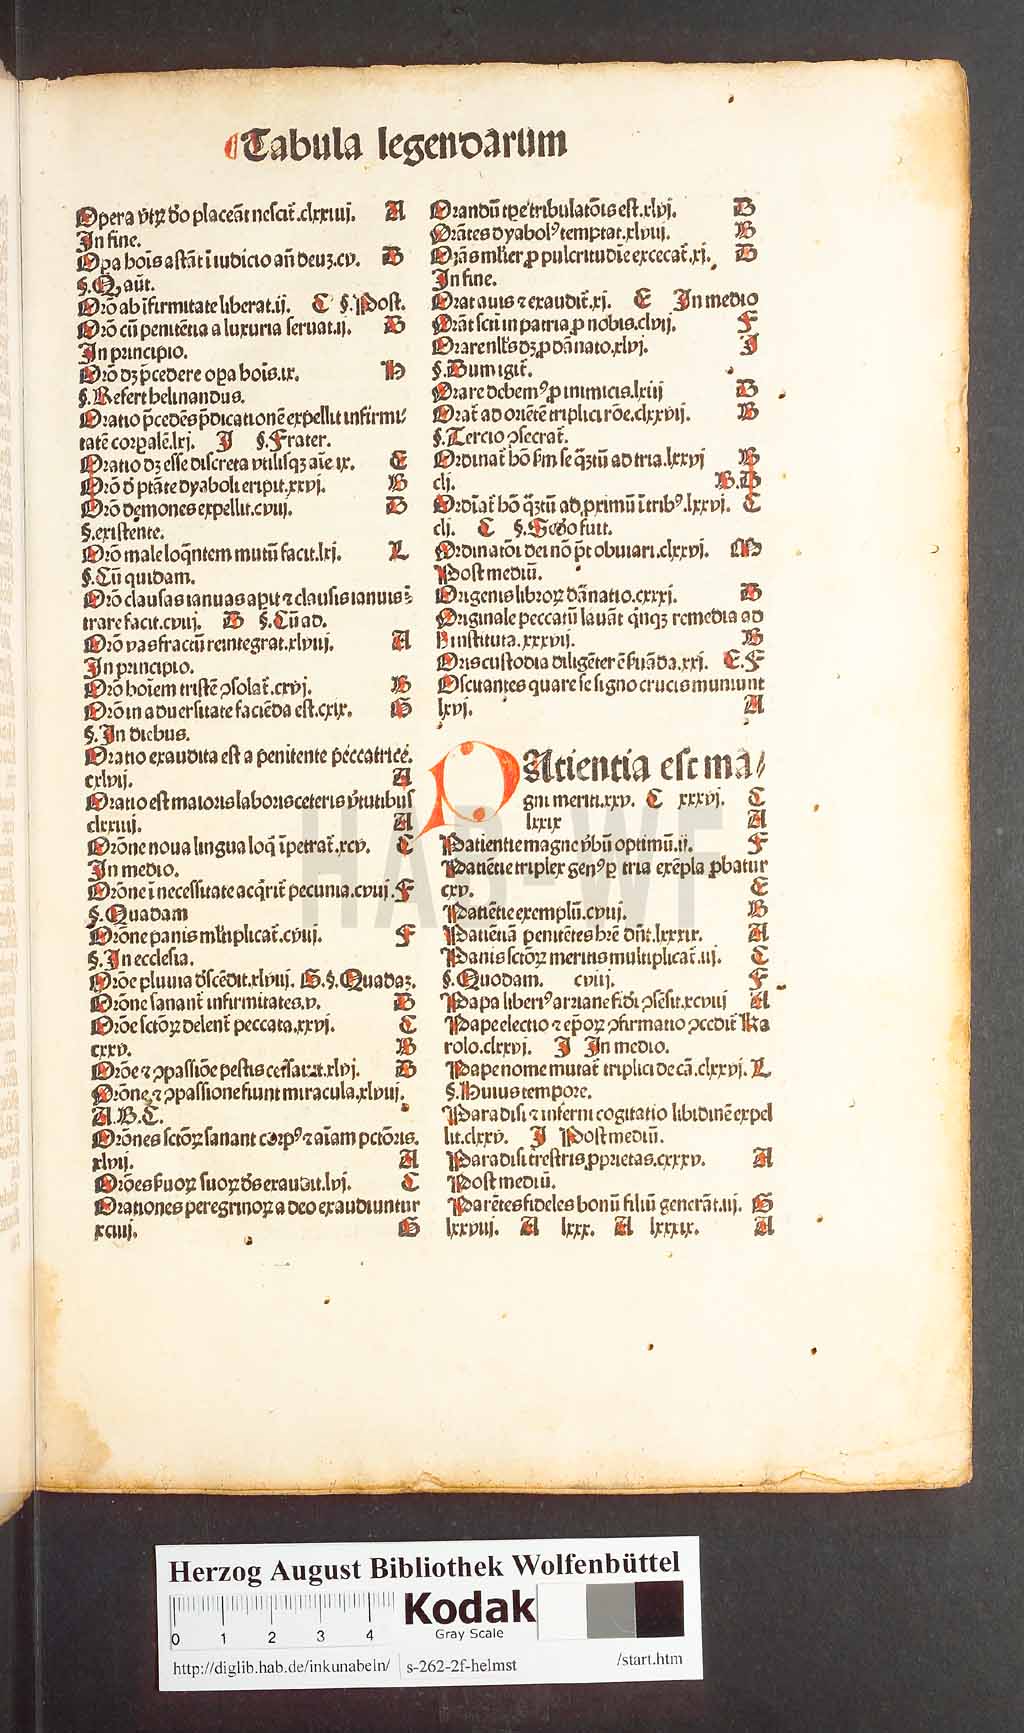 Tabula legendarum
Opera v̄tꝝ d̄o placeāt nescit̄.clxxiiij. A
In fine.
Oꝑa hoīs astāt ī iudicio añ deuꝫ.cv. D
§. Q, aūt.
Orō ab īfirmitate liberat.ij. C §. Post.
Orō cū penitētia a luxuria seruat.ij. B
In principio.
Orō dꝫ p̄cedere oꝑa hoīs.ix. H
§. Refert helinandus.
Oratio p̄cedēs p̄dicationē expellit infirmi⸗
tatē corꝑalē.lxj. J §. Frater.
Oratio dꝫ esse discreta vtilisqꝫ aīe ix. E
Orō d̄ ptāte dyaboli eripit.xxvj. B
Orō demones expellit.cviij. D
§. existente.
Orō male loq̄ntem mutū facit.lxj. L
§. Cū quidam.
Orō clausas ianuas aꝑit ⁊ clausis ianuis
trare facit.cviij. D §. Cū ad.
Orō vas fractū reintegrat.xlviij. A
In principio.
Orō hoīem tristē ꝯsolat̄.cxvj. B
Orō in aduersitate faciēda est.cxix. G
§. In diebus.
Oratio exaudita est a penitente peccatrice.
cxlvij. A
Oratio est maioris laboris ceteris v̄tutibus
clxxiiij. A
Orōne noua lingua loq̄ īpetrat̄.xcv. C
In medio.
Orōne ī necessitate acq̄rit̄ pecunia.cviij. F
§. Quadam
Orōne panis mltiplicat̄.cviij. F
§. In ecclesia.
Orōe pluuia d̄scēdit.xlviij. G. §. Quadaꝫ.
Orōne sanant̄ infirmitates.v. D
Orōe sctōꝝ delent̄ peccata.xxvj. C
cxxv. B
Orōe ⁊ ꝯpassiōe pestis cessauit.xlvj. D
Orōne ⁊ ꝯpassione fiunt miracula.xlviij.
A.B.C.
Orōnes sctōꝝ sanant corpꝰ ⁊ aīam pctōris.
xlvij. A
Orōes suoꝝ d̄s exaudit.lvj. C
Orationes peregrinoꝝ a deo exaudiuntur
xciiij. G
Orandū tꝑe tribulatōis est.xlvj. D
Orātes dyabolꝰ temptat.xlviij. B
Orās ml̄ier ꝓ pulcritudīe excecat̄.xj. D
In fine.
Orat auis ⁊ exaudit̄.xj. E In medio
Orāt scti in patria ꝓ nobis.clvij. F
Orare nlls dꝫ ꝓ dānato.xlvj. J
§. Dum igit̄.
Orare debemꝰ ꝓ inimicis.lxiij D
Orat̄ ad oriētē triplici rōe.clxxvij. B
§. Tercio ꝯsecrat̄.
Ordinat̄ hō sm se q̄ꝫtū ad tria.lxxvj B
clj. B.D
Ordīat̄ hō q̄ꝫtū ad ꝓximū ī tribꝰ.lxxvj. C
clj. C §. Scdo fuit.
Ordinatōi dei nō pt̄ obuiari.clxxvj. M
Post mediū.
Origenis libroꝝ dānatio.cxxxj. D
Originale peccatū lauāt q̄nqꝫ remedia ad
instituta.xxxvij. B
Oris custodia diligēter ē fuāda.xxj. E.F
Oscuantes quare se signo crucis muniunt
lxvj. A
PAtientia est ma⸗
gni meriti.xxv. C xxxvj. C
lxxix A
Patientie magne v̄bū optimū.ij. F
Patiētie triplex genꝰ ꝑ tria exēpla ꝓbatur
cxv. E
Patiētie exemplū.cviij. B
Patiētiā penitētes hr̄e dn̄t.lxxxix. A
Panis sctōꝝ meritis multiplicat̄.iij. C
§. Quodam. cviij. F
Papa liberiꝰ arriane fidei ꝯsēsit.xcviij A
Pape electio ⁊ ep̄oꝝ ꝯfirmatio ꝯcedit̄ Ka
rolo.clxxvj. J In medio.
Pape nome mutat̄ triplici de cā.clxxvj. L
§. Huius tempore.
Paradisi ⁊ inferni cogitatio libidinē expel
lit.clxxv. J Post mediū.
Paradisi t̄restris ꝓprietas.cxxxv. A
Post mediū.
Parētes fideles bonū filiū generāt.iij. G
lxxviij. A lxxx. A lxxxix. A
HAB-WF
Herzog August Bibliothek Wolfenbüttel
0 1 2 3 4
Kodak
Gray Scale
http://diglib.hab.de/inkunabeln/ s-262-2f-helmst /start.htm